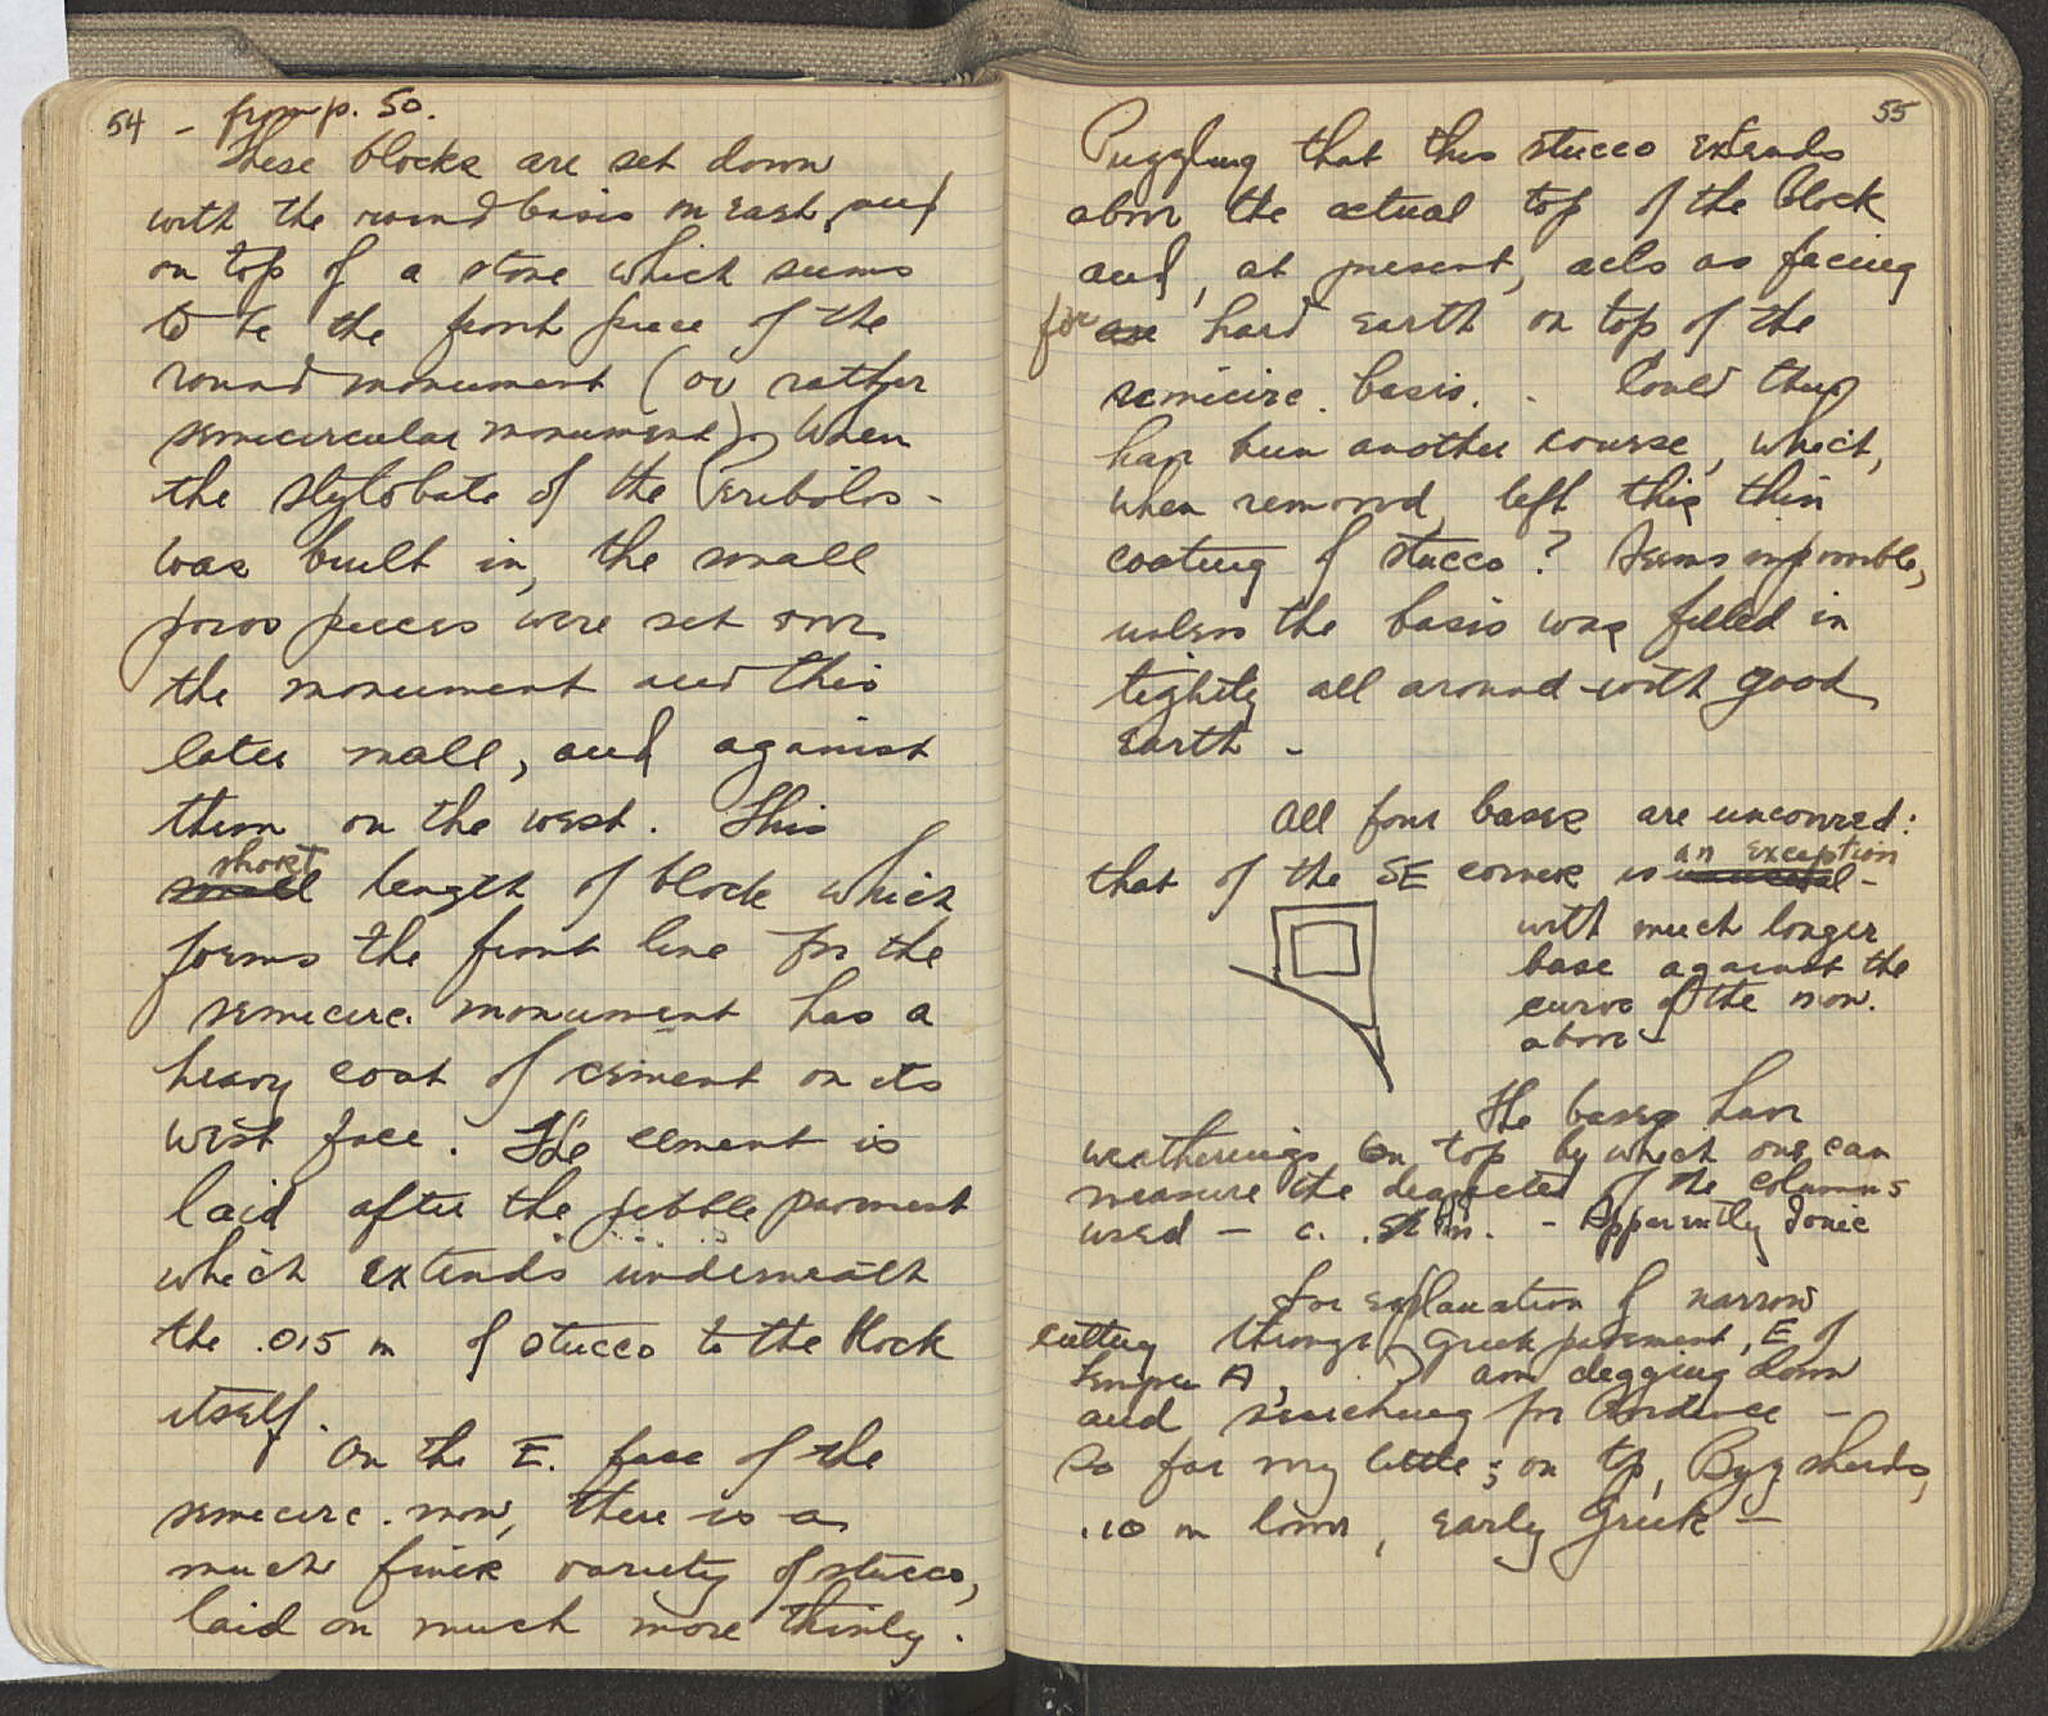 54 - from p. 50.
These blocks are set down
with the round basis on east, and
on top of a stone which seems
to be the front piece of the
round monument (or rather
semicircular monument). When
the stylobate of the Peribolos -
was built in, the small
poros pieces were set over
the monument and this
later wall, and against
them on the west. This
short
small length of block which
forms the front line for the
semicirc. monument has a
heavy coat of cement on its
west face. The cement is
laid after the pebble pavement
which extends underneath
the .015 m of stucco to the block
itself.
On the E. face of the
semicirc. mon, there is a
much finer variety of stucco,
laid on much more thinly.
55
Puzzling that this stucco extends
above the actual top of the block
and, at present, acts as facing
for hard earth on top of the
semicirc. basis. Could there
have been another course, which,
when removed, left this thin
coating of stucco? Seems impossible,
unless the basis was filled in
tightly all around with good
earth -
All four bases are uncovered:
an exception
that of the SE corner is unusual -
with much longer
base against the
curve of the mon.
above -
The bases have
weatherings on top by which one can
measure the diameter of the columns
used - c. m. - Apparently Ionic
For explanation of narrow
cutting through Greek pavement, E of
Temple A, am digging down
and searching for evidence -
So far very little; on top, Byz sherds,
.10 m lower, early Greek -